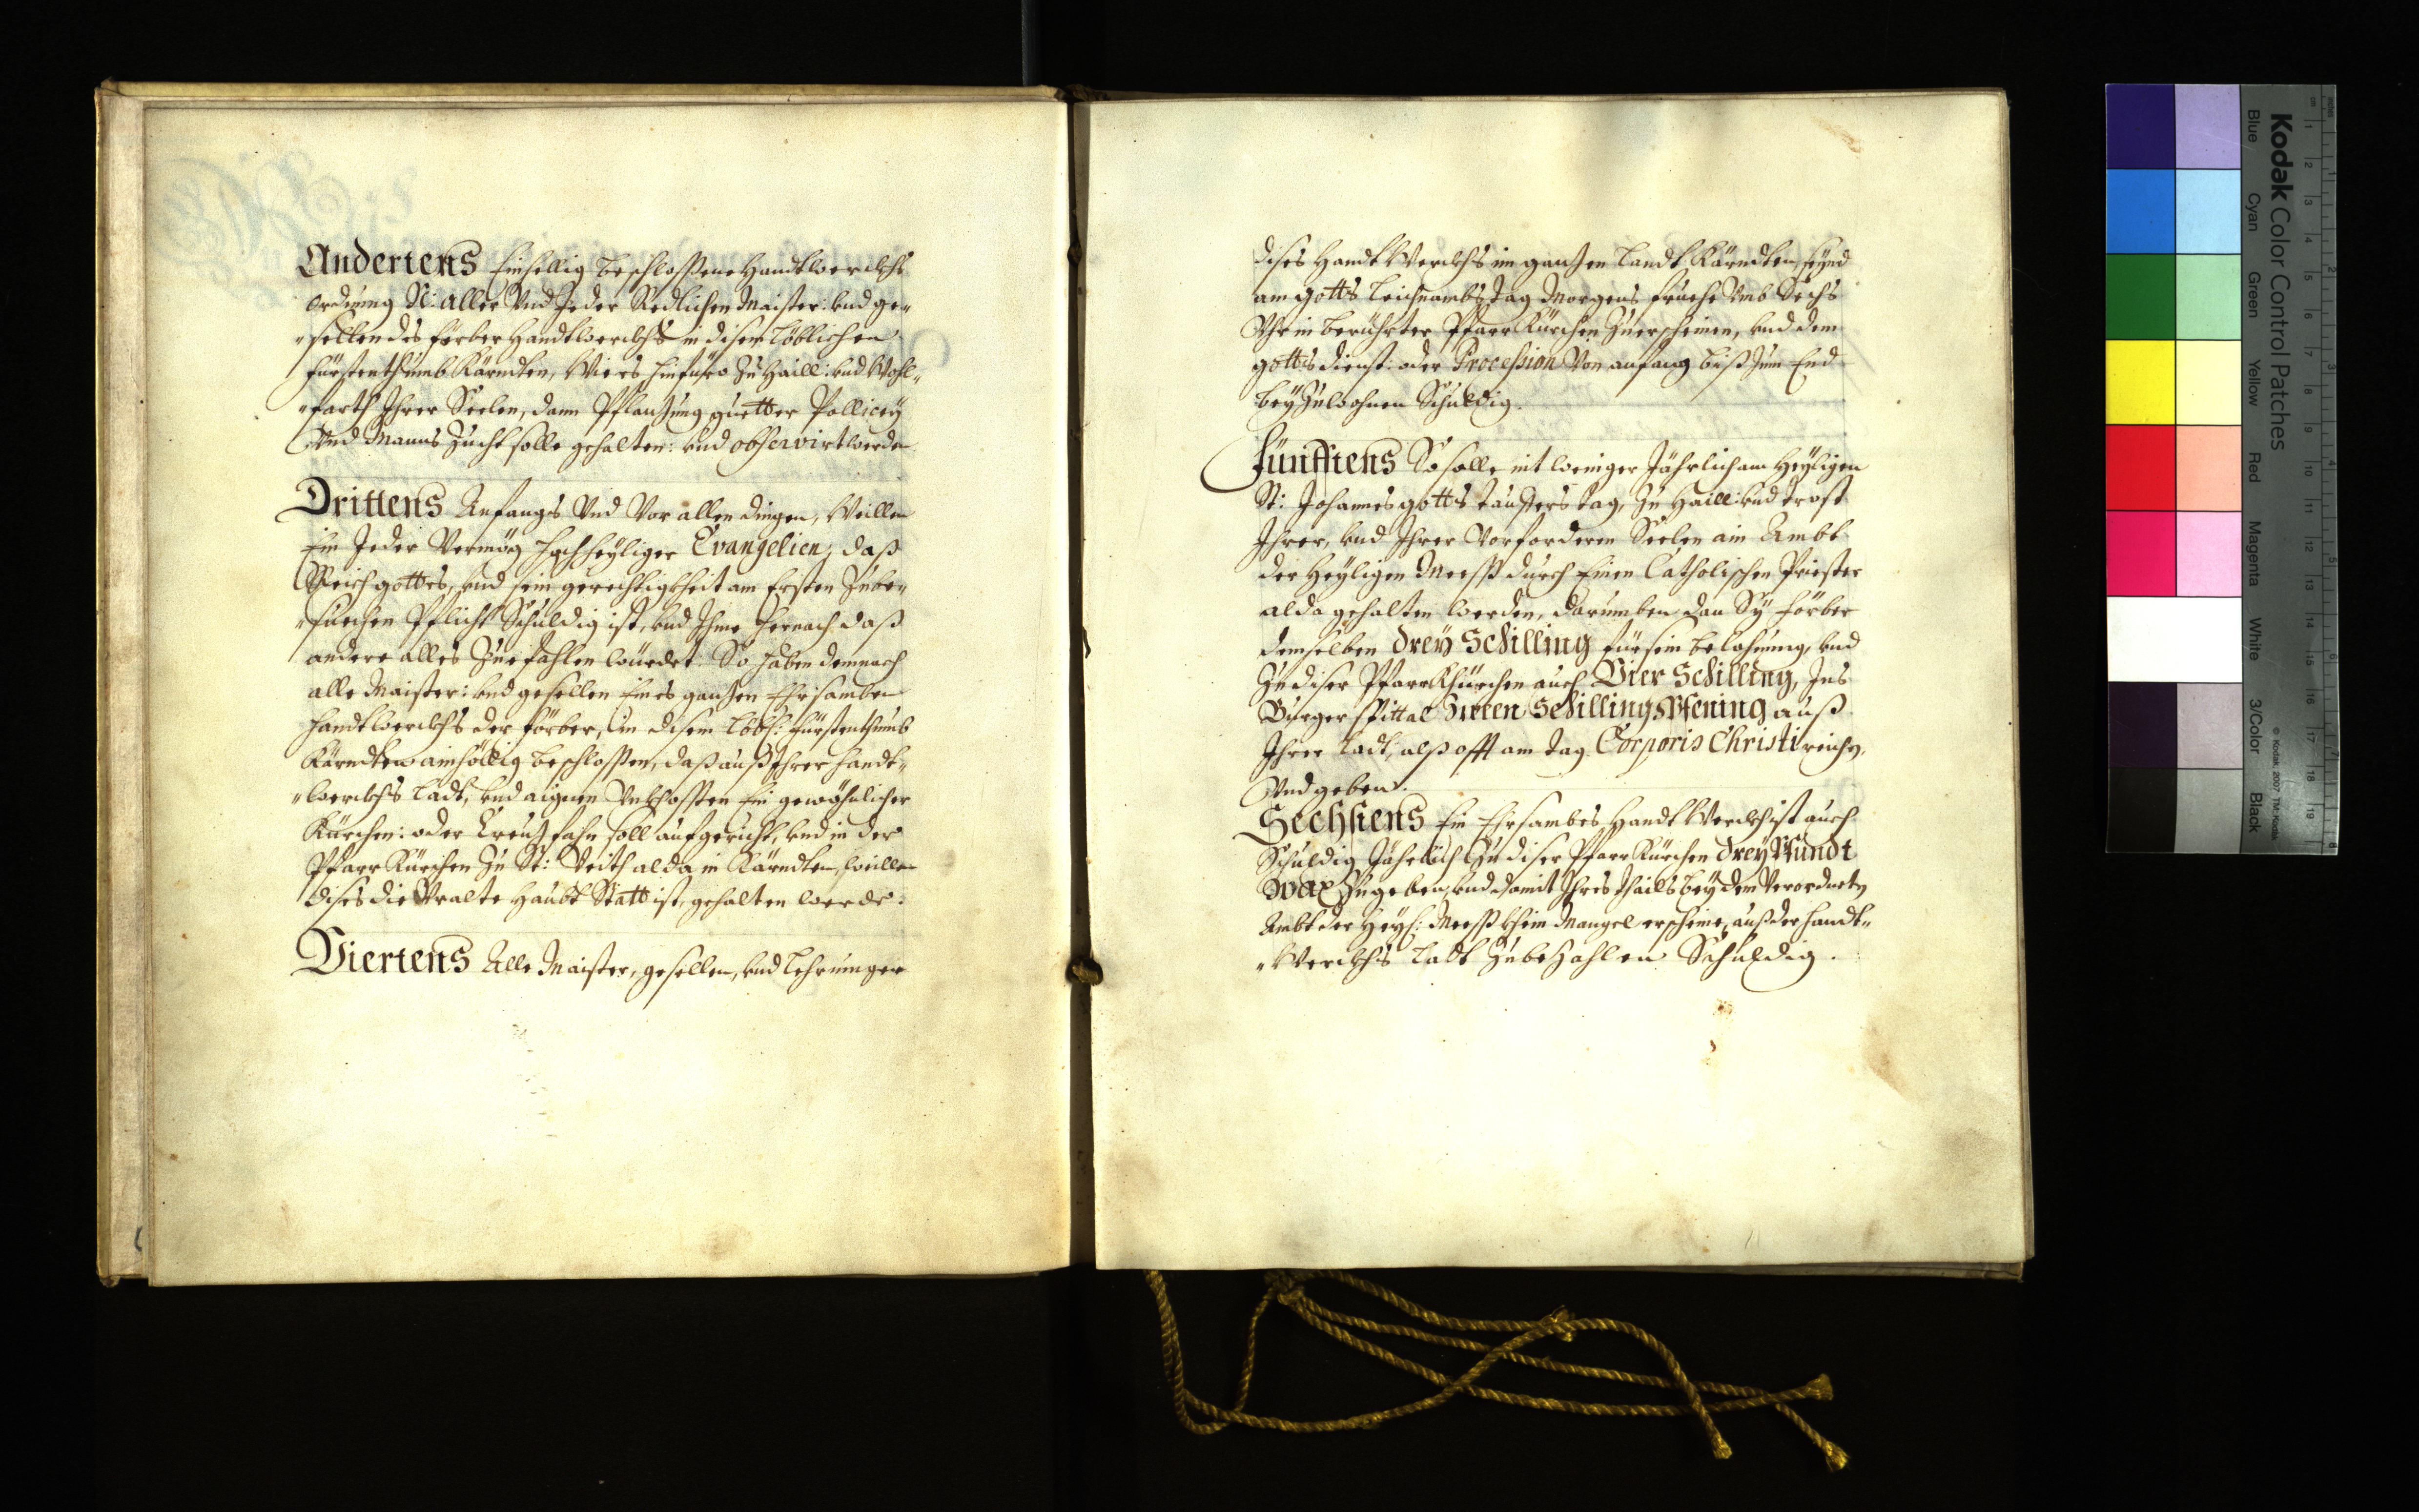 Andertens Einhellig beschlossene Handtwerckhs
ordnung N: aller Vnd Jeder Redlichen Maister: vnd ge„
„sellen des förber Handtwerckhs in disem löblichen
fürstenthumb Kärndten, Wie es hinfüro Zu Haill: vnd Wohl„
„farth Ihrer Seelen, dann Pflanzung guetter Pollicey
Vnd Manns Zucht solle gehalten: vnd observirt werden
Drittens Anfangs Vnd Vor allen dingen, Weillen
Ein Jeder Vermög Hochheyliger Evangelien, daß
Reich gottes, vnd sein gerechtigkheit am Ersten Zube„
„suechen Pflicht Schuldig ist, vnd Ihme hernach daß
andere alles Zuefahlen würdet: So haben demnach
alle Maister: vnd gesellen Eines ganzen Ehrsamben
Handtwerckhs der förber, in disem löbl: fürstenthumb
Kärndten ainhöllig beschlossen, daß auß Ihrer Handt„
„werckhs ladt, vnd aignen Vnkhossten Ein gewöhnlicher
Kürchen: oder Creuz fahn soll aufgericht, vnd in der
Pfarr Kürchen Zu St: Veith alda in Kärndten, weillen
dises die Vralte Haubt Statt ist, gehalten werde:
Viertens Alle Maister, gesellen, vnd lehrunger
dises Handt Werckhs im ganzen landt Kärndten, seynd
am gotts leichnambs tag Morgens fruehe Vmb Sechs
Vhr in berührter Pfarr Kürchen Zuerscheinen, vnd dem
gottsdienst: oder Procession Von anfang biß Zum End
beyZuwohnen Schuldig.
Fünfftens So solle nit weniger Jährlich am Heyligen
St: Johannes gotts tauffers tag, Zu Haill: vnd trost
Ihrer, vnd Ihrer Vorforderen Seelen ain Ambt
der Heyligen Meeß durch Einen Catholischen Priester
alda gehalten werden, darumben dan Sÿ förber
demselben dreÿ Schilling für sein belohnung, vnd
Zu diser PfarrKhürchen auch Vier Schilling, Ins
Burger Spittal Zween Schilling Pfening auß
Ihrer ladt, alß offt am tag Corporis Christi reichen,
Vnd geben.
Sechstens Ein Ehrsambes Handt Werckh ist auch
Schuldig Jährlich Zu diser Pfarr Kürchen dreÿ Pfundt
Wax Zugeben, vnd damit Ihres thails bey dem Verordneten
Ambt der Heyl: Meeß khein Mangel erscheine, auß der Handt„
„Werckhs ladt ZubeZahlen Schuldig.
Kodak Color Control Patches
Blue Cyan Green Yellow Red Magenta White 3/Color Black
© Kodak, 2007 TM: Kodak